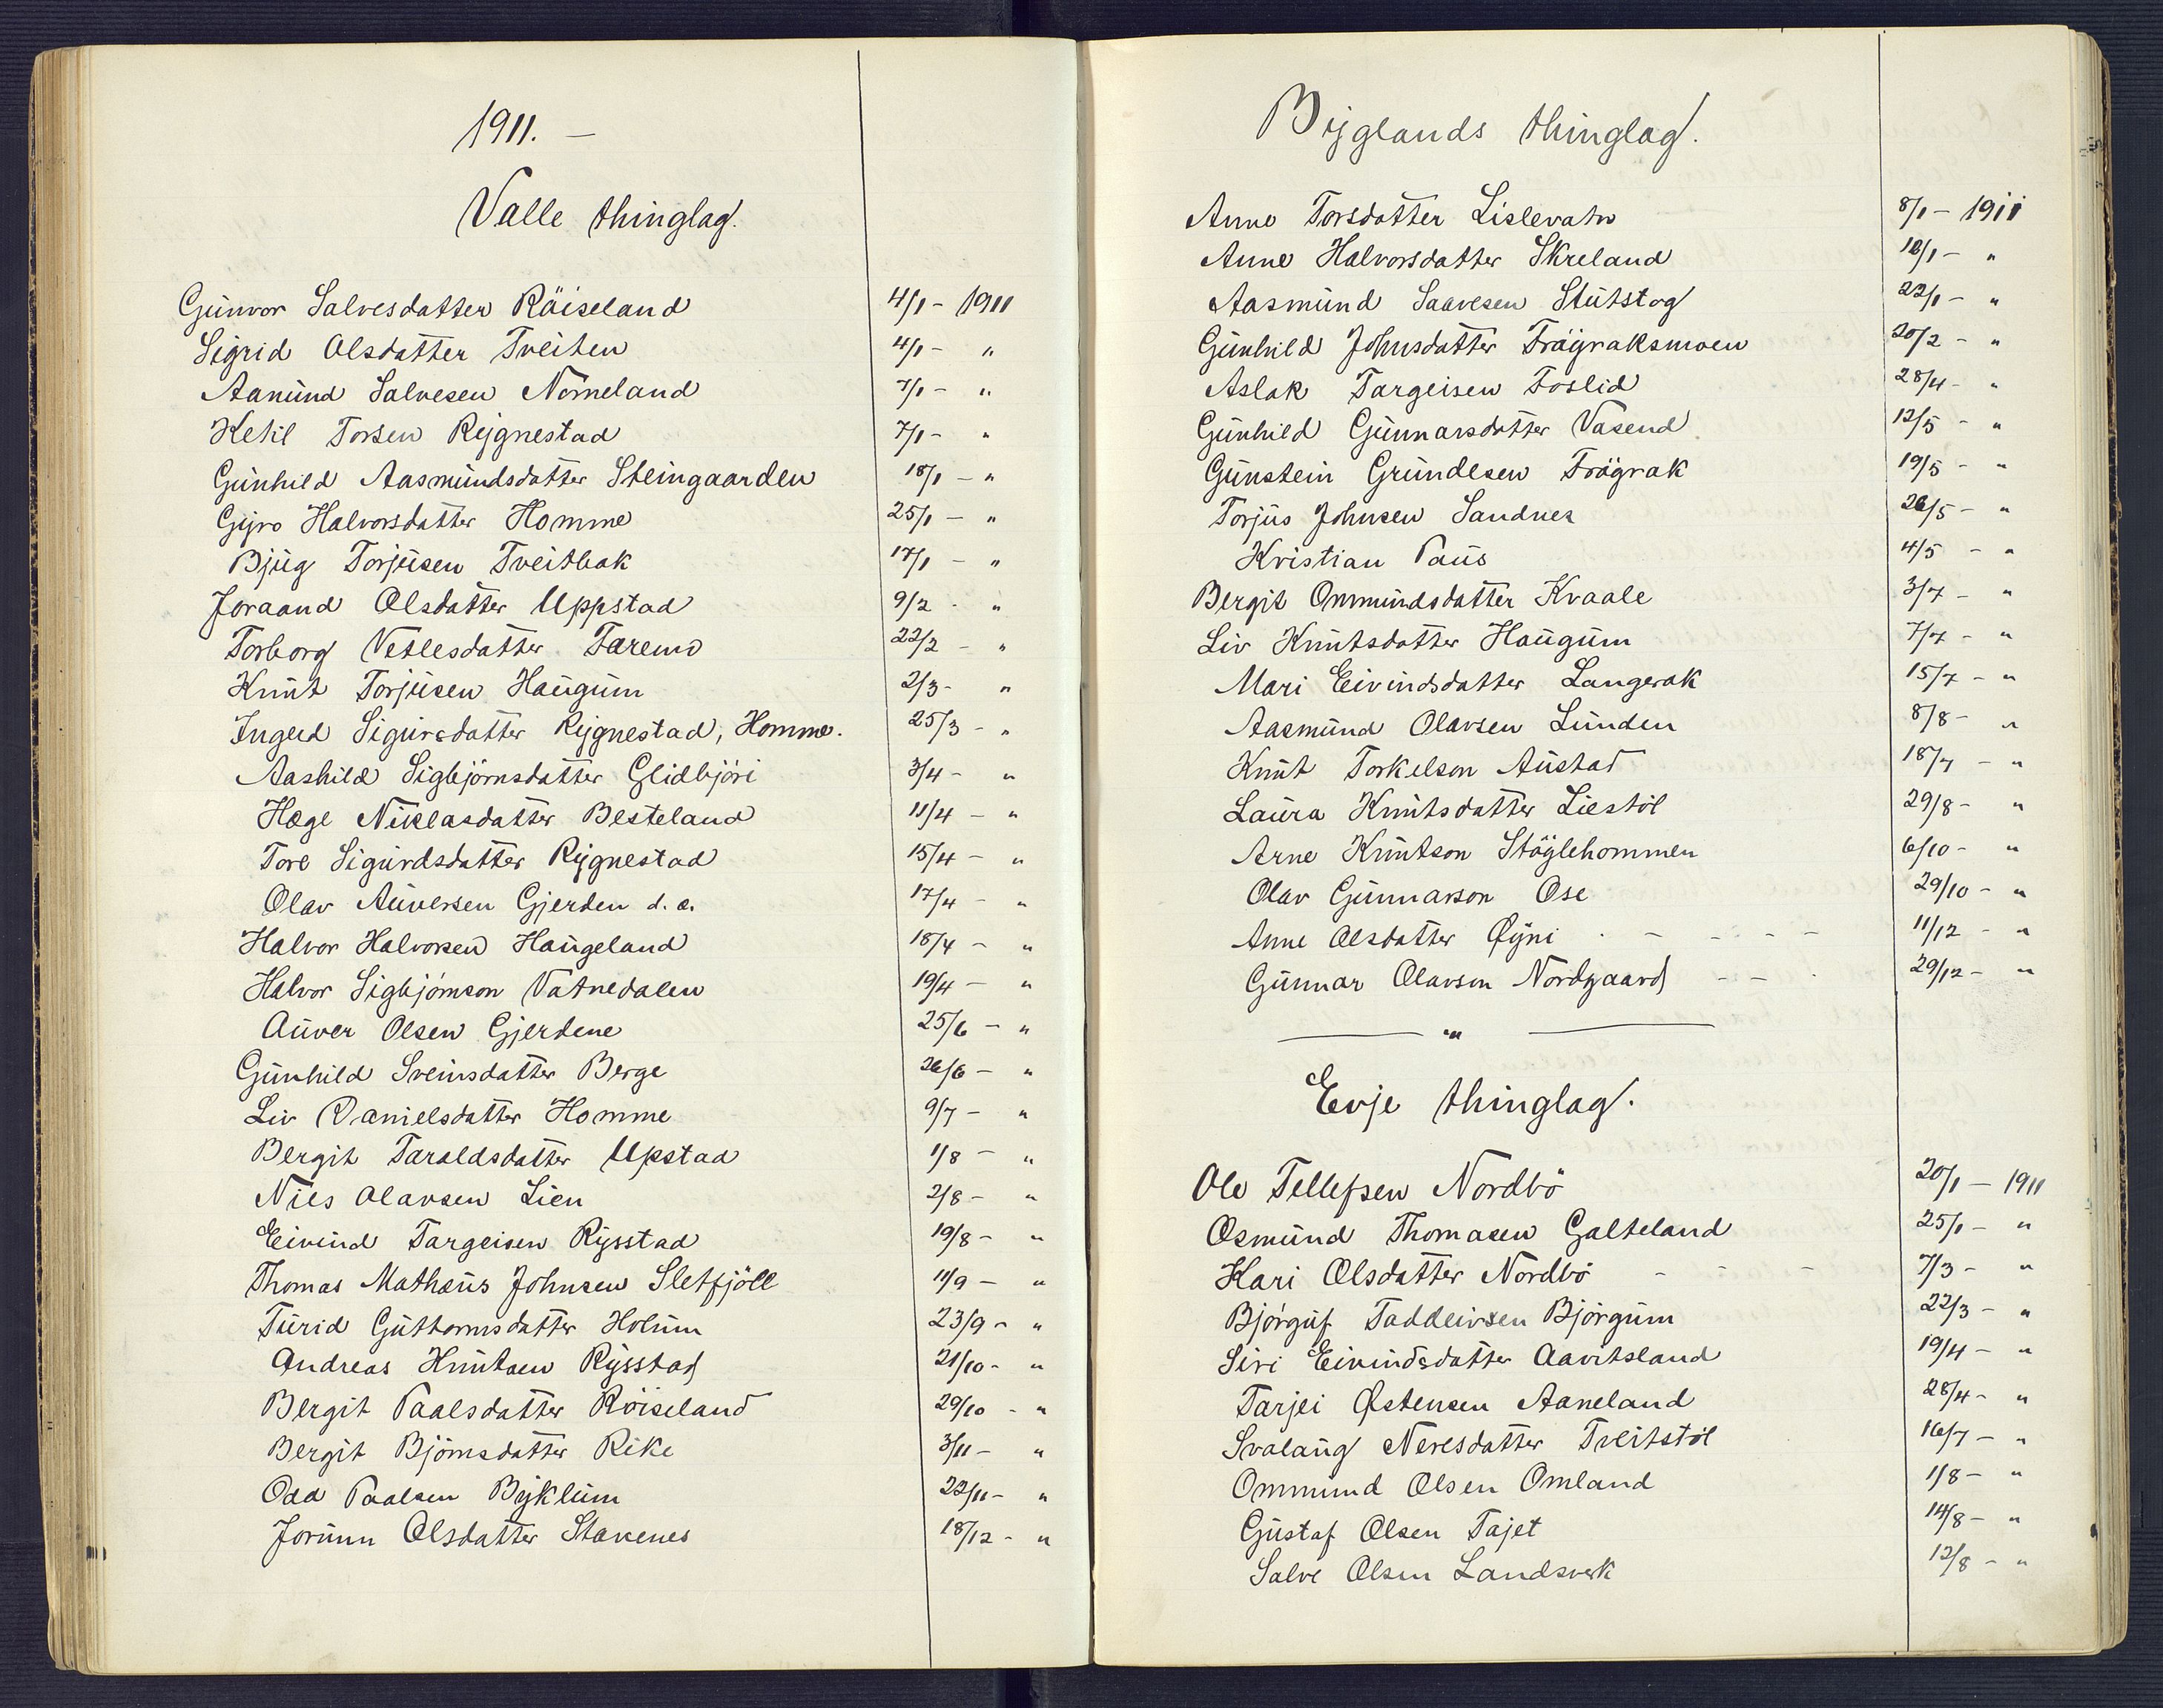 1911. —
Valle thinglag.
Gunvor Salvesdatter Röiseland 4/1 - 1911
Sigrid Olsdatter Tveiten 4/1 - "
Aanund Salvesen Nomeland 7/1 - "
Ketil Torsen Rygnestad 7/1 - "
Gunhild Aasmundsdatter Steingaarden 18/1 - "
Gyro Halvorsdatter Homme 25/1 - "
Bjug Torjusen Tveitbak 17/1 - "
Joraand Olsdatter Uppstad 9/2 - "
Torborg Vetlesdatter Faremo 22/2 - "
Knut Torjusen Haugum 2/3 - "
Ingerd Sigursdatter Rygnestad, Homme. 25/3 - "
Aashild Sigbjörnsdatter Glidbjöri 3/4 - "
Hæge Niklasdatter Besteland 11/4 - "
Tore Sigurdsdatter Rygnestad 15/4 - "
Olav Auversen Gjerden d.e. 17/4 - "
Halvor Halvorsen Haugeland 18/4 - "
Halvor Sigbjörnson Vatnedalen 19/4 - "
Auver Olsen Gjerdene 25/6 - "
Gunhild Sveinsdatter Berge 26/6 - "
Liv Danielsdatter Homme 9/7 - "
Bergit Taraldsdatter Upstad 1/8 - "
Nils Olavsen Lien 2/8 - "
Eivind Targeisen Rysstad 19/8 - "
Thomas Mathæus Johnsen Sletfjöll 11/9 - "
Turid Guthormsdatter Holum 23/9 - "
Andreas Knutsen Rysstad 21/10 - "
Bergit Paalsdatter Röiseland 29/10 - "
Bergit Björnsdatter Rike 3/11 - "
Odd Paalsen Byklum 22/11 - "
Jorunn Olsdatter Stavenes 18/12 - "
Byglands thinglag.
Anne Torsdatter Lislevatn 8/1 - 1911
Anne Halvorsdatter Skreland 12/1 - "
Aasmund Saavesen Stutstog 22/1 - "
Gunhild Johnsdatter Frøyraksmoen 20/2 - "
Aslak Targeisen Foslid 28/4 - "
Gunhild Gunnarsdatter Vasend 12/5 - "
Gunstein Grundesen Fröyrak 19/5 - "
Torjus Johnsen Sandnes 26/5 - "
Kristian Paus 4/5 - "
Bergit Ommundsdatter Kvaale 3/7 - "
Liv Knutsdatter Haugum 7/7 - "
Mari Eivindsdatter Langerak 15/7 - "
Aasmund Olavsen Lunden 8/8 - "
Knut Torkelson Austad 18/7 - "
Laura Knutsdatter Liestöl 29/8 - "
Arne Knutson Stöylehommen 6/10 - "
Olav Gunnarson Ose 29/10 - "
Anne Olsdatter Øyni - - - - - 11/12 - "
Gunnar Olavson Nordgaard - - - 29/12 - "
— " —
Evje thinglag.
Ole Tellefsen Nordbö 20/1 - 1911
Osmund Thomasen Galteland 25/1 - "
Kari Olsdatter Nordbö - - - 7/3 - "
Björguf Taddeivsen Björgum 22/3 - "
Siri Eivindsdatter Aavitsland 19/4 - "
Tarjei Østensen Aaneland 28/4 - "
Svalaug Nerisdatter Tveitstöl 16/7 - "
Ommund Olsen Omland 1/8 - "
Gustaf Olsen Fajet 14/8 - "
Salve Olsen Landsverk 12/8 - "